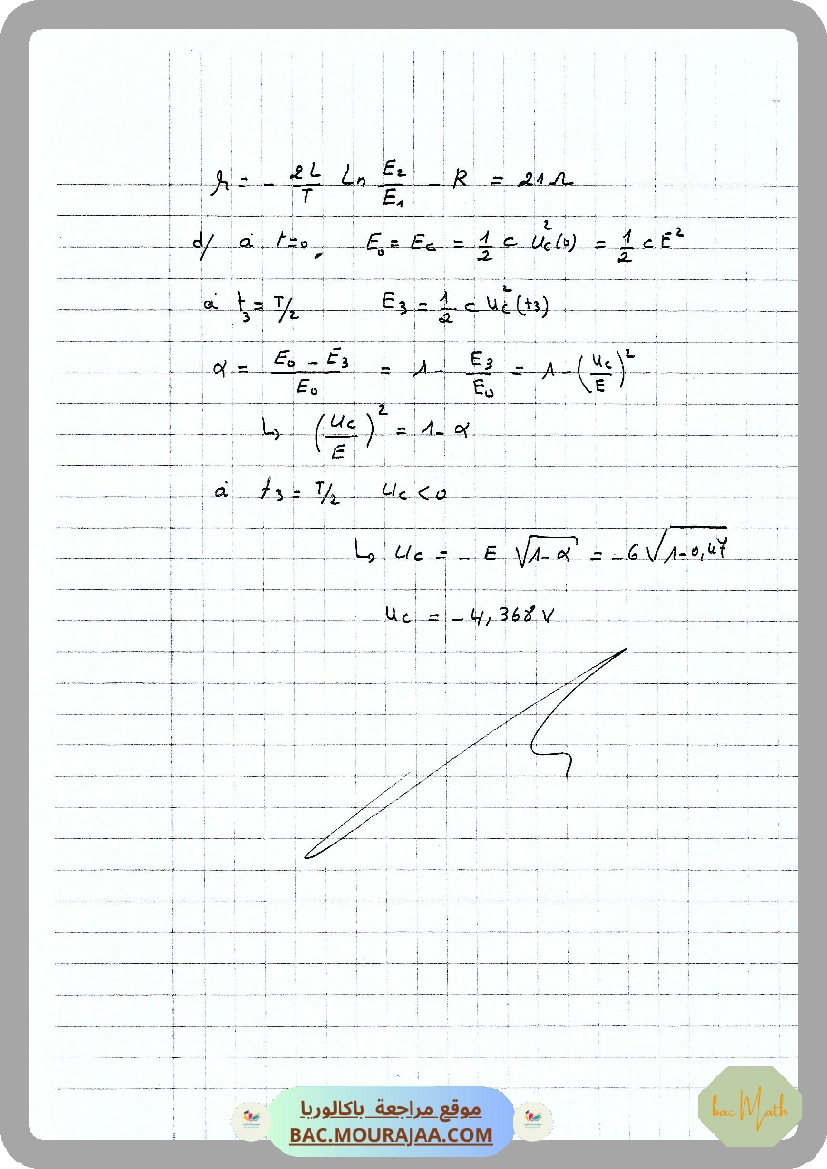 r = - 2L/T Ln E₂/E₁ - R = 21 Ω
d/ à t=0, E₀ = Ec = 1/2 c Uc²(0) = 1/2 c E²
à t₃ = T/2 E₃ = 1/2 c Uc²(t₃)
α = (E₀ - E₃)/E₀ = 1 - E₃/E₀ = 1 - (Uc/E)²
↳ (Uc/E)² = 1 - α
à t₃ = T/2 Uc < 0
↳ Uc = - E √(1-α) = -6 √(1-0,47)
Uc = - 4,368 V
موقع مراجعة باكالوريا
BAC.MOURAJAA.COM
bac Math